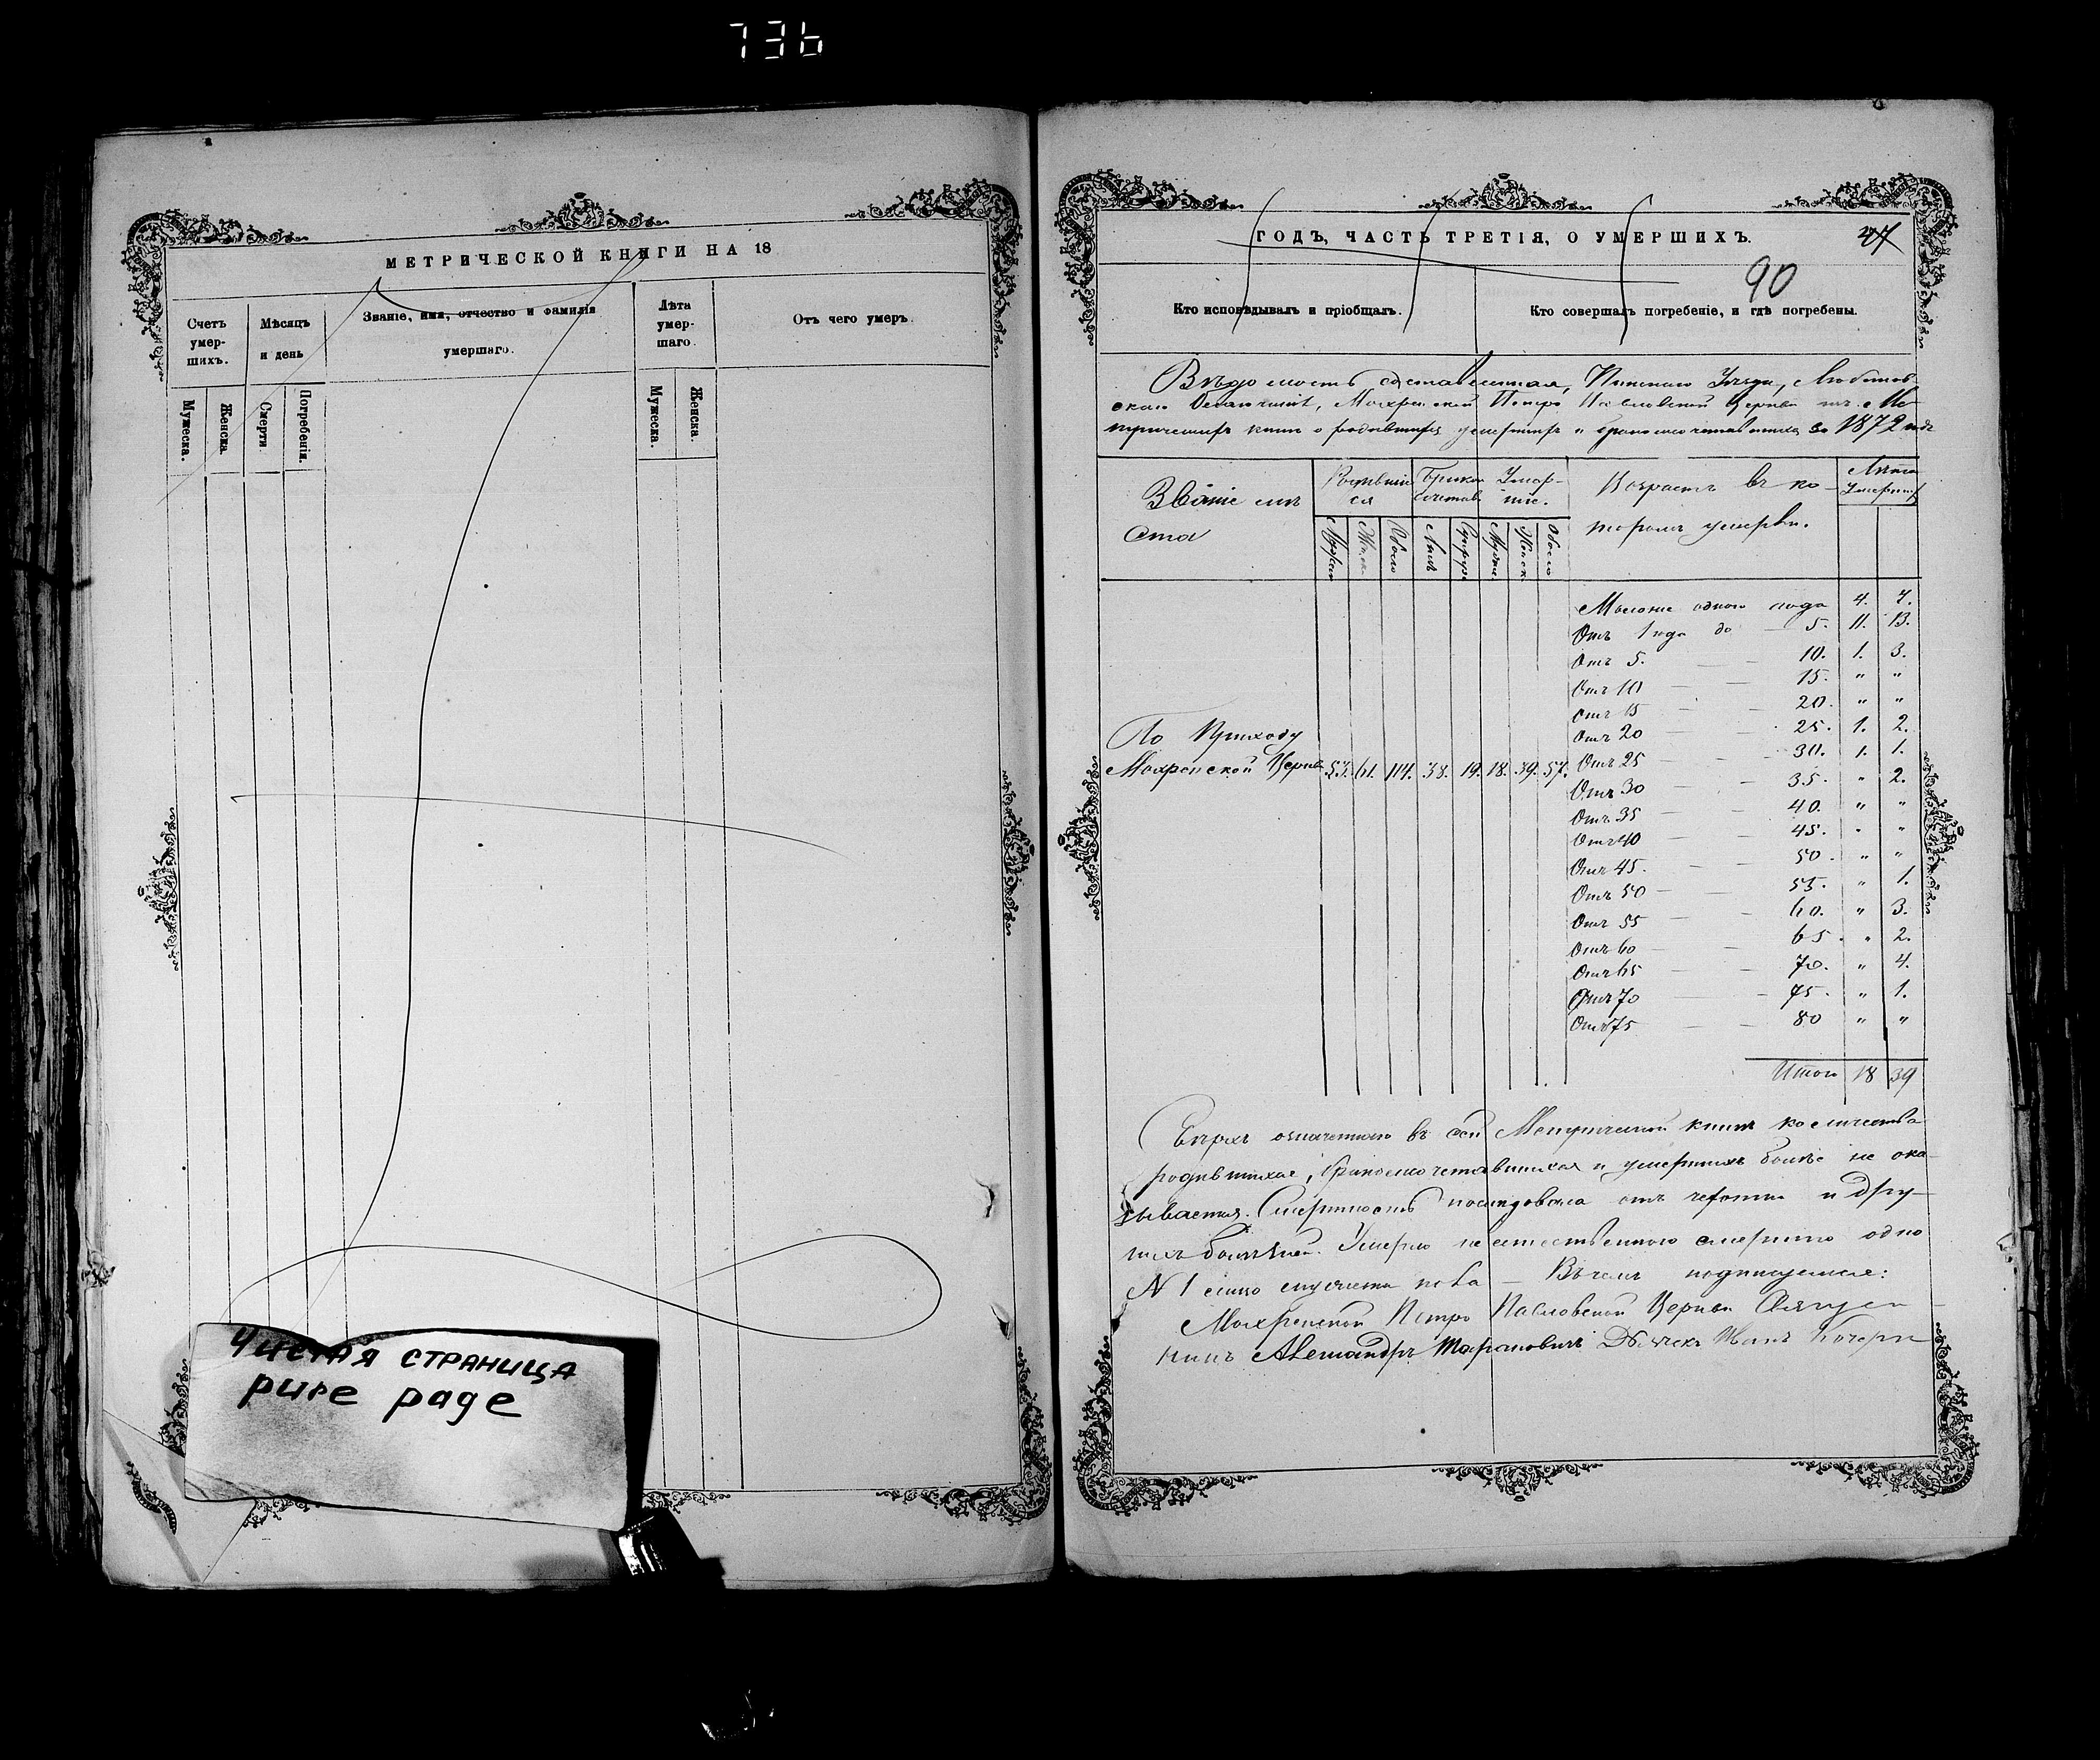 736
МЕТРИЧЕСКОЙ КНИГИ НА 18
Счетъ умер-шихъ.
Мѣсяцъ и день
Званіе, имя, отчество и фамилія умершаго.
Лѣта умер-шаго.
Отъ чего умеръ.
Мужеска.
Женска.
Смерти.
Погребенія.
Мужеска.
Женска.
Чистая страница
pure page
ГОДЪ, ЧАСТЬ ТРЕТІЯ, О УМЕРШИХЪ.
90
Кто исповѣдывалъ и пріобщалъ.
Кто совершалъ погребеніе, и гдѣ погребены.
Вѣдомость составленная, Пинскаго Уѣзда, Любешов-
скаго Благочинія, Мохренской Петро Павловской Церкви изъ Ме-
трическихъ книгъ о родившихся умершихъ и бракосочетавшихся за 1872 годъ
Званіе мѣ
ста
Родивши
ся
Бракосочетав
Умер-
шіе.
Возрастъ въ ко-
торомъ умерли.
Лѣта
Умершихъ
Женск
Обоего
Обоего
Моложе одного года 4. 7.
Отъ 1 года до 5. 11. 13.
Отъ 5. 10. 1. 3.
Отъ 10 15. " "
Отъ 15 20. " "
Отъ 20 25. 1. 2.
Отъ 25 30. 1. 1.
Отъ 30 35. " 2.
Отъ 35 40. " "
Отъ 40 45. " "
Отъ 45. 50. " "
Отъ 50 55. " 1.
Отъ 55 60. " 3.
Отъ 60 65. " 2.
Отъ 65 70. " 4.
Отъ 70 75. " 1.
Отъ 75 80 " "
Итого 18 39
По Приходу
Мохренской Церкви 53. 61. 114. 38. 19. 18. 39. 57.
Сверхъ означеннаго въ сей Метрической книгѣ количества
родившихся, бракосочетавшихся и умершихъ болѣе не ока-
зывается. Смертность послѣдовала отъ и дру-
гихъ болѣзней. Умерло неестественною смертію одно
N 1 лицо Въ чемъ подписуемся:
Мохренской Петро Павловской Церкви Священ-
никъ Александръ Тарановичъ Дьячекъ Иванъ